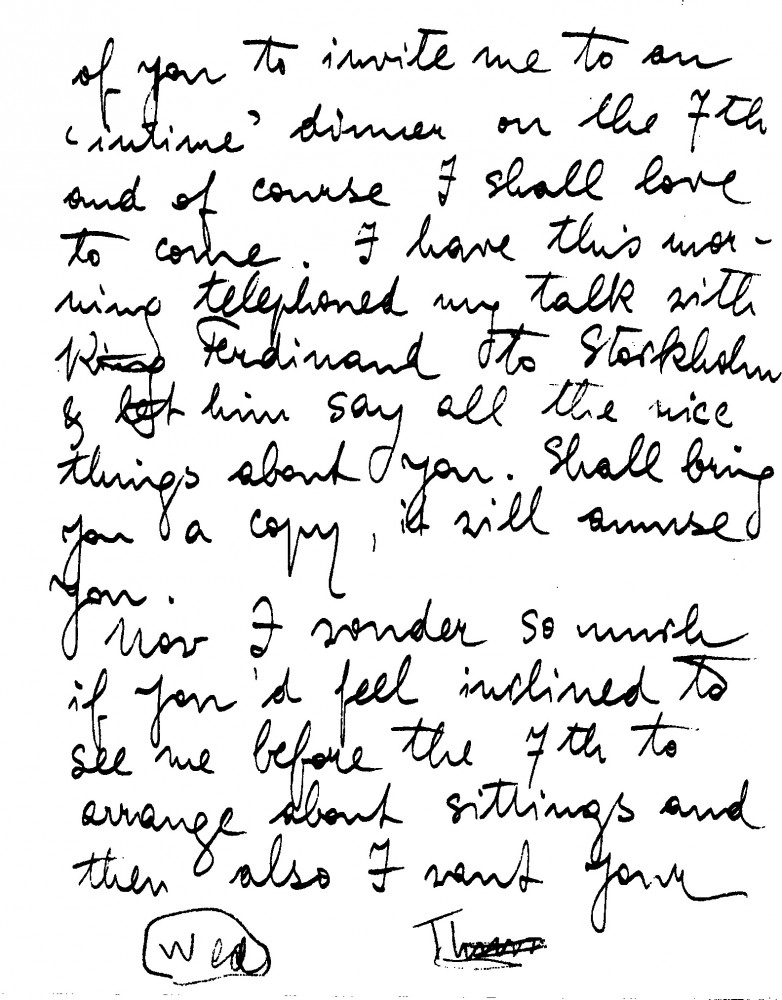 of you to invite me to an
'intime' dinner on the 7th
and of course I shall love
to come. I have this mor-
ning telephoned my talk with
King Ferdinand to Stockholm
& let him say all the nice
things about you. Shall bring
you a copy, it will amuse
you.
Now I wonder so much
if you'd feel inclined to
see me before the 7th to
arrange about sittings and
then also I want your
Wed Thurs